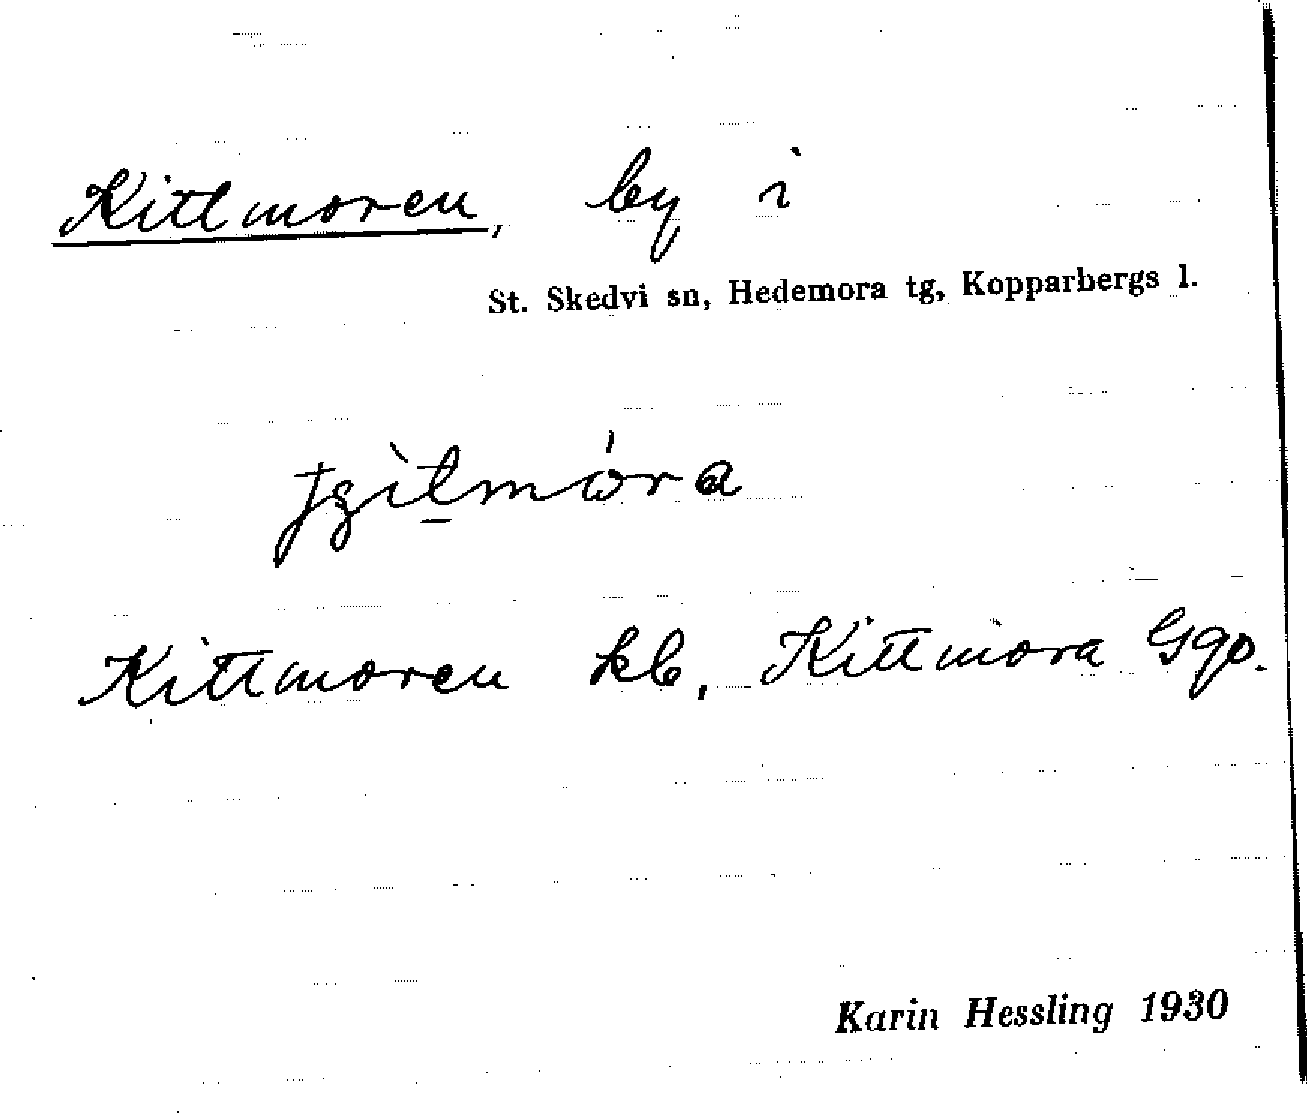 Kittmoren, by i
St. Skedvi sn, Hedemora tg, Kopparbergs l.
Kittmoren kb, Kittmora Ggo.
Karin Hessling 1930